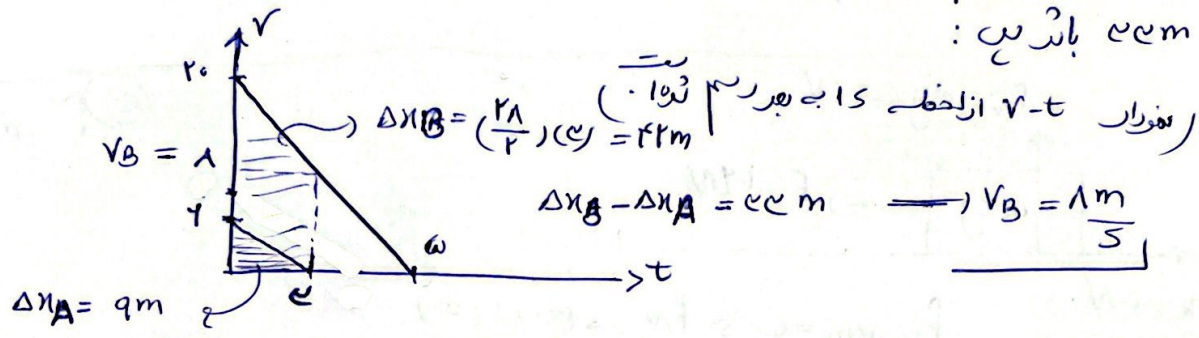 ۳۳m باشد پس :
(نمودار v-t از لحظه 1s به بعد رسم شده است.)
v
۲۰
ΔxB = (۲۸/۲)(۳) = ۴۲m
VB = ۸
ΔxB - ΔxA = ۳۳m ⟹ VB = ۸ m/s
۶
۳
۵
t
ΔxA = ۹m